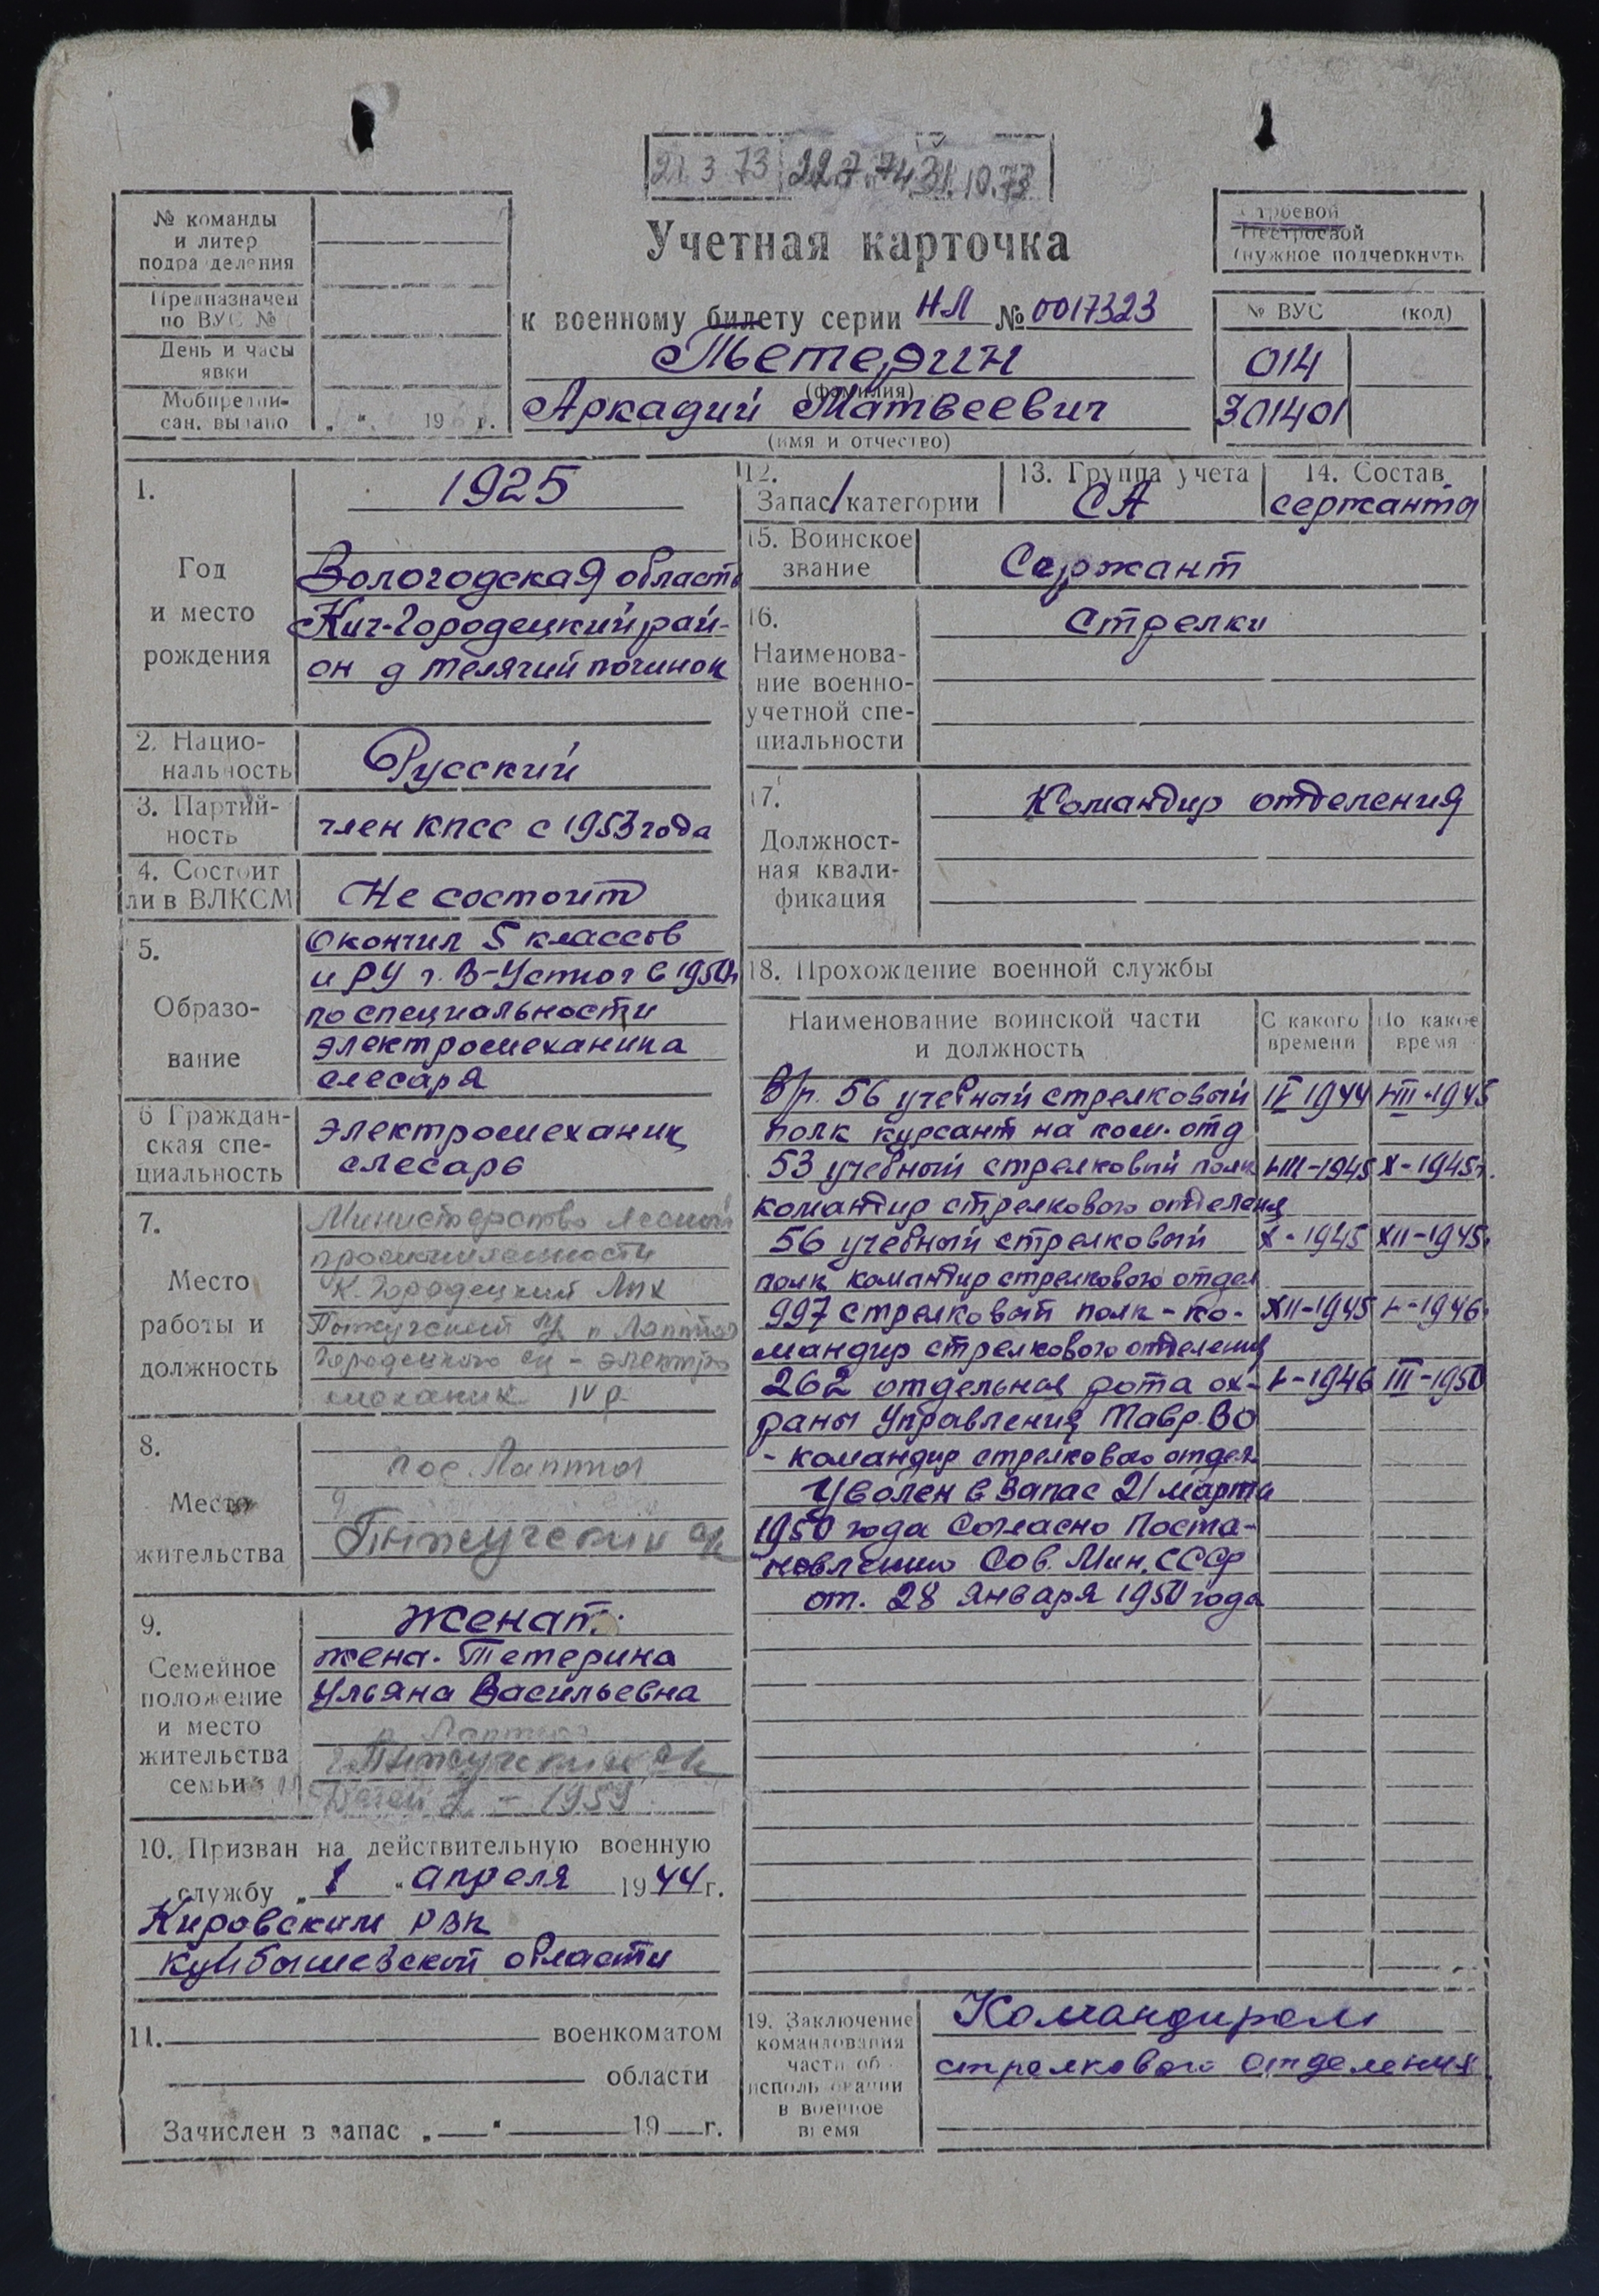 21.3.73 22.7.74 31.10.73
№ команды
и литер
подразделения
Предназначен
по ВУС №
День и часы
явки
Мобпредпи-
сан. выдано „ “ 19 г.
Учетная карточка
к военному билету серии НЛ № 0017323
Тетерин
(фамилия)
Аркадий Матвеевич
(имя и отчество)
Строевой
Нестроевой
(нужное подчеркнуть
№ ВУС (код)
014
301401
1.
Год
и место
рождения
1925
Вологодская область
Кич-Городецкий рай-
он д Телячий починок
2. Нацио-
нальность
Русский
3. Партий-
ность
член КПСС с 1953 года
4. Состоит
ли в ВЛКСМ
Не состоит
5.
Образо-
вание
Окончил 5 классов
и РУ г. В-Устюг в 1950г
по специальности
электромеханика
слесаря
6 Граждан-
ская спе-
циальность
Электромеханик
слесарь
7.
Место
работы и
должность
Министерство лесной
промышленности
К. Городецкий лпх
п Лаптюг
Городецкого - электро
механик IV р.
8.
Место
жительства
пос. Лаптюг
9.
Семейное
положение
и место
жительства
семьи
Женат.
жена. Тетерина
Ульяна Васильевна
п Лаптюг
- 1959
10. Призван на действительную военную
службу „ 1 “ апреля 1944 г.
Кировским РВК
Куйбышевской области
11. военкоматом
области
Зачислен в запас „ “ 19 г.
12.
Запас 1 категории
13. Группа учета
СА
14. Состав
сержанты
15. Воинское
звание
Сержант
16.
Наименова-
ние военно-
учетной спе-
циальности
Стрелки
17.
Должност-
ная квали-
фикация
Командир отделения
18. Прохождение военной службы
Наименование воинской части
и должность
С какого
времени
По какое
время
В/р. 56 учебный стрелковый IV 1944 VIII-1945
полк курсант на ком. отд
53 учебный стрелковый полк VIII-1945 X-1945г.
командир стрелкового отделения
56 учебный стрелковый X-1945 XII-1945.
полк командир стрелкового отдел
997 стрелковый полк - ко- XII-1945 V-1946.
мандир стрелкового отделения
262 отдельная рота ох- V-1946 III-1950
раны Управления Тавр. ВО
- командир стрелкового отдел
Уволен в запас 21 марта
1950 года Согласно Поста-
новлению Сов. Мин. СССР
от. 28 января 1950 года
19. Заключение
командования
части об
использовании
в военное
время
Командиром
стрелкового отделения